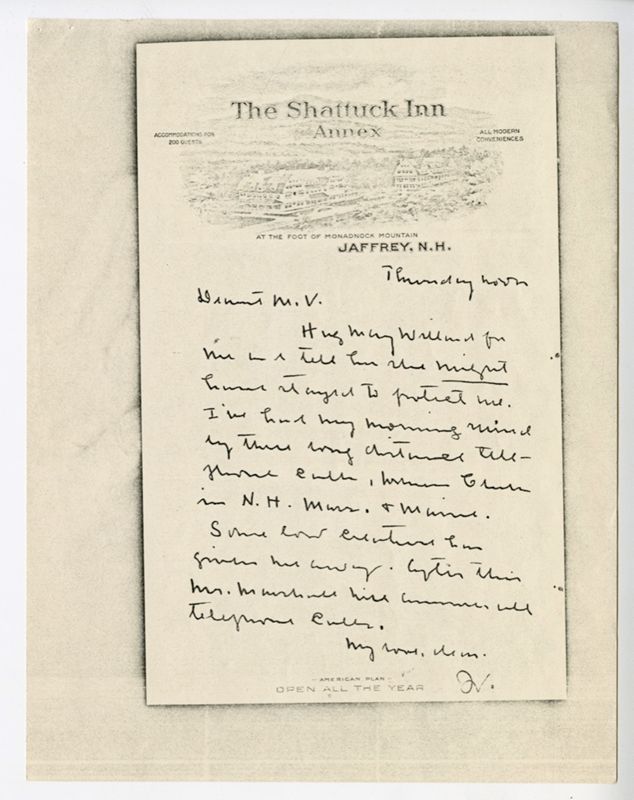 The Shattuck Inn
Annex
ACCOMMODATIONS FOR
200 GUESTS
ALL MODERN
CONVENIENCES
AT THE FOOT OF MONADNOCK MOUNTAIN
JAFFREY, N.H.
Thursday noon
Dearest M.V.
Hug Mary Willard for
me and tell her she might
have stayed to protect me.
I've had my morning ruined
by three long distance tele-
phone calls, Woman's Clubs
in N.H. Mass. & Maine.
Some low creature has
given me away. After this
Mr. Marshall will answer all
telephone calls.
My love, dear.
AMERICAN PLAN
OPEN ALL THE YEAR